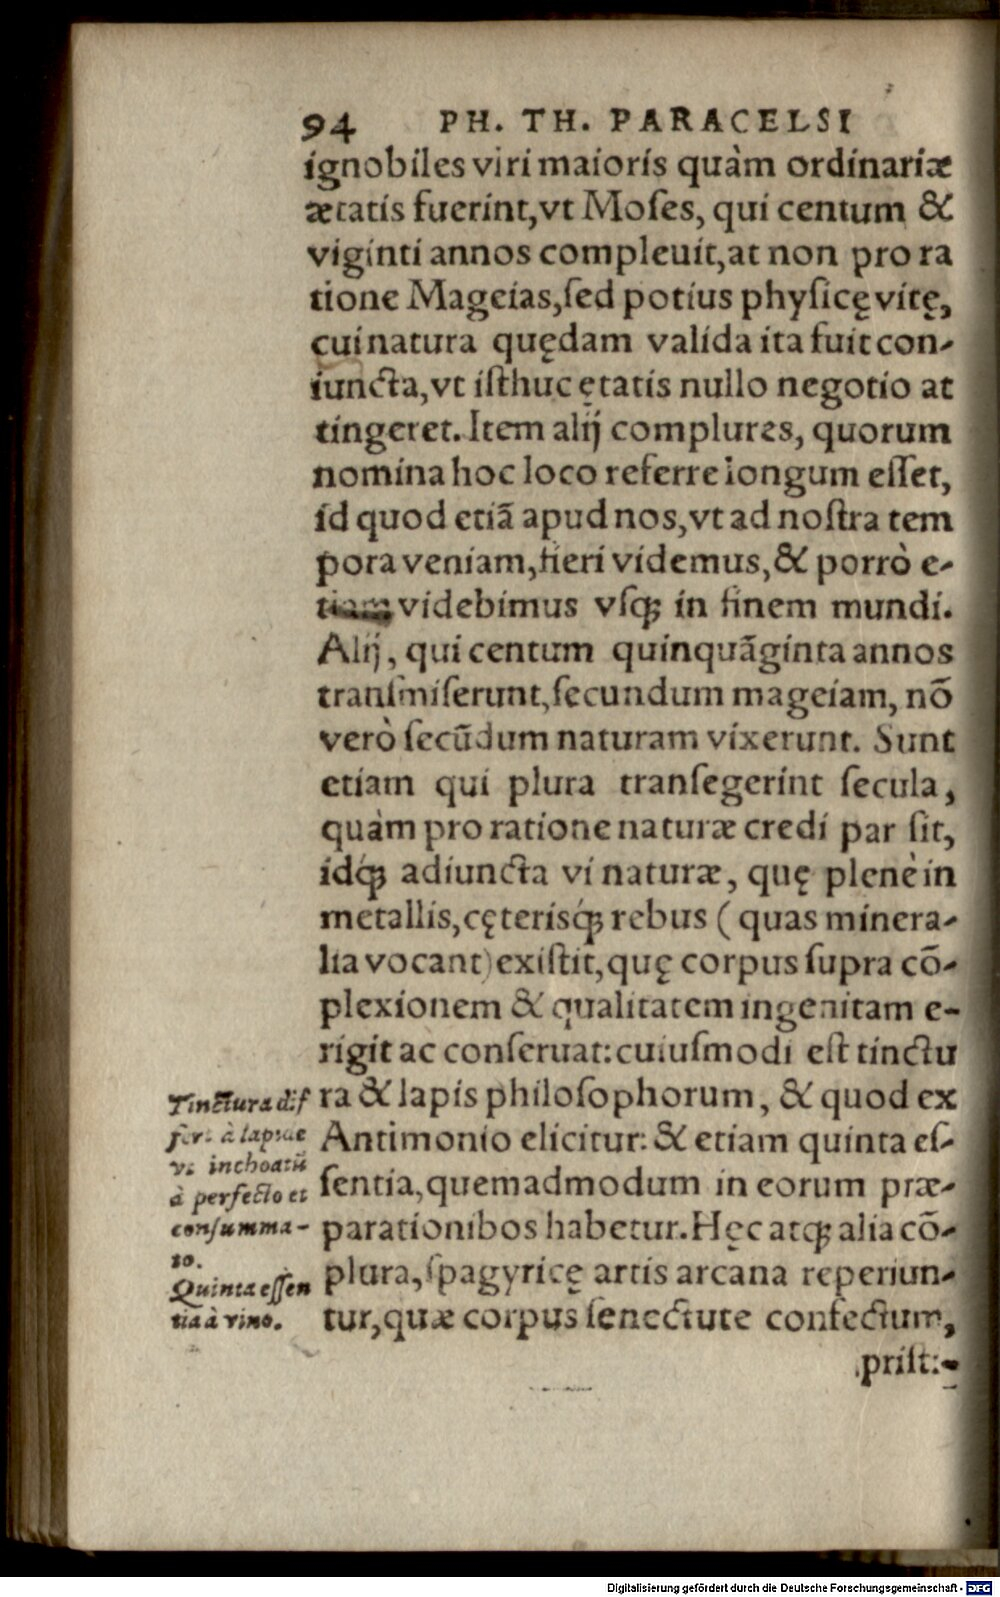 94 PH. TH. PARACELSI
ignobiles viri maioris quàm ordinariæ
ætatis fuerint, vt Moſes, qui centum &
viginti annos compleuit, at non pro ra
tione Mageias, ſed potius phyſicę vitę,
cui natura quędam valida ita fuit con-
iuncta, vt iſthuc ętatis nullo negotio at
tingeret. Item alij complures, quorum
nomina hoc loco referre longum eſſet,
id quod etiã apud nos, vt ad noſtra tem
pora veniam, fieri videmus, & porrò e-
tiam videbimus vſq́ꝫ in finem mundi.
Alij, qui centum quinquãginta annos
tranſmiſerunt, ſecundum mageiam, nõ
verò ſecũdum naturam vixerunt. Sunt
etiam qui plura tranſegerint ſecula,
quàm pro ratione naturæ credi par ſit,
idq́ꝫ adiuncta vi naturæ, quę plenè in
metallis, cęterisq́ꝫ rebus (quas minera-
lia vocant) exiſtit, quę corpus ſupra cõ-
plexionem & qualitatem ingenitam e-
rigit ac conſeruat: cuiuſmodi eſt tinctu
ra & lapis philoſophorum, & quod ex
Antimonio elicitur: & etiam quinta eſ-
ſentia, quemadmodum in eorum præ-
parationibos habetur. Hęc atqꝫ alia cõ-
plura, ſpagyricę artis arcana reperiun-
tur, quæ corpus ſenectute confectum,
priſti-
Tinctura dif
fert à lapide
vt inchoatũ
à perfecto et
conſumma-
to.
Quinta eſſen
tia à vino.
Digitalisierung gefördert durch die Deutsche Forschungsgemeinschaft - DFG